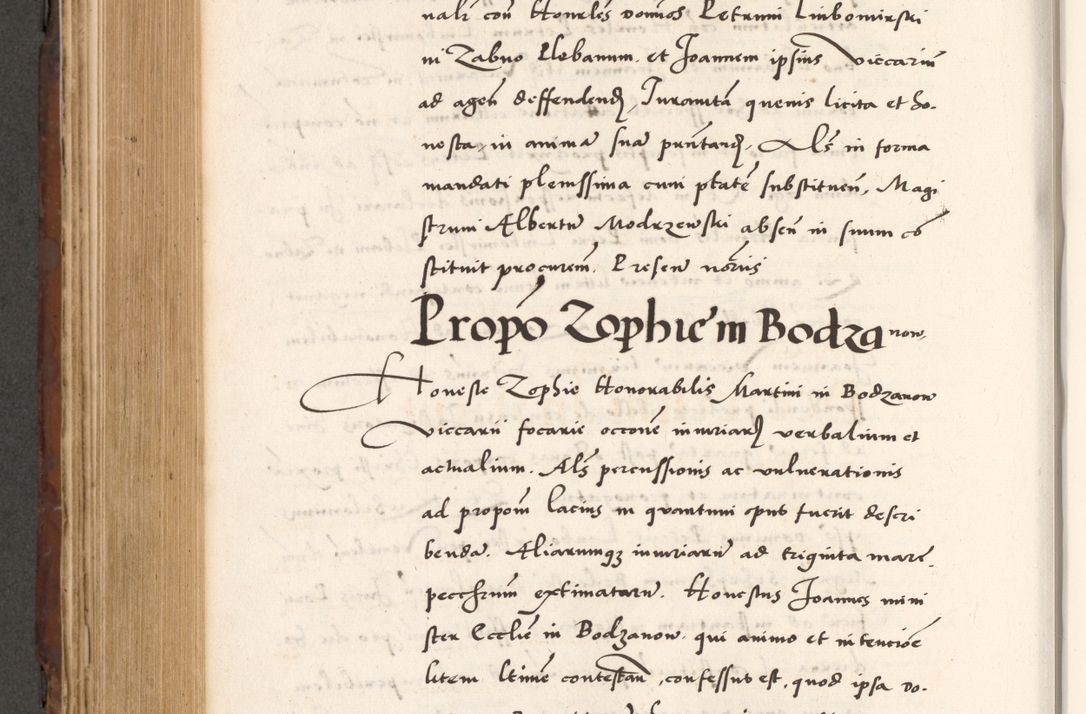 nali con Honorles domnos Petrum Liubomirski
in Zabno Plebanum et Joannem ipsius Viccariū
ad agen deffendend, Juramtā quevis licita et ho-
nesta in animā suā prntand, Als in forma
mandati plenissima cum ptatē substituen, Magi
strum Albertū Modrzewski absen in suum cō
stituit procurem. Presen notriis
Propō Zophie in Bodzanow.
Honeste Zophie Honorabilis Martini in Bodzanow
Viccarii focarie occone iniuriard verbalium et
actualium. Als percussionis ac vulnerationis
ad propom lacius in quantum opus fuerit descri
benda. Aliarumqz iniuriarū ad triginta marc.
pecchrum extimatarū. Honestus Joannes mini
ster Ecclie in Bodzanow. qui animo et intencioe
litem ltime contestan, confessus est, quod ipsa Do-